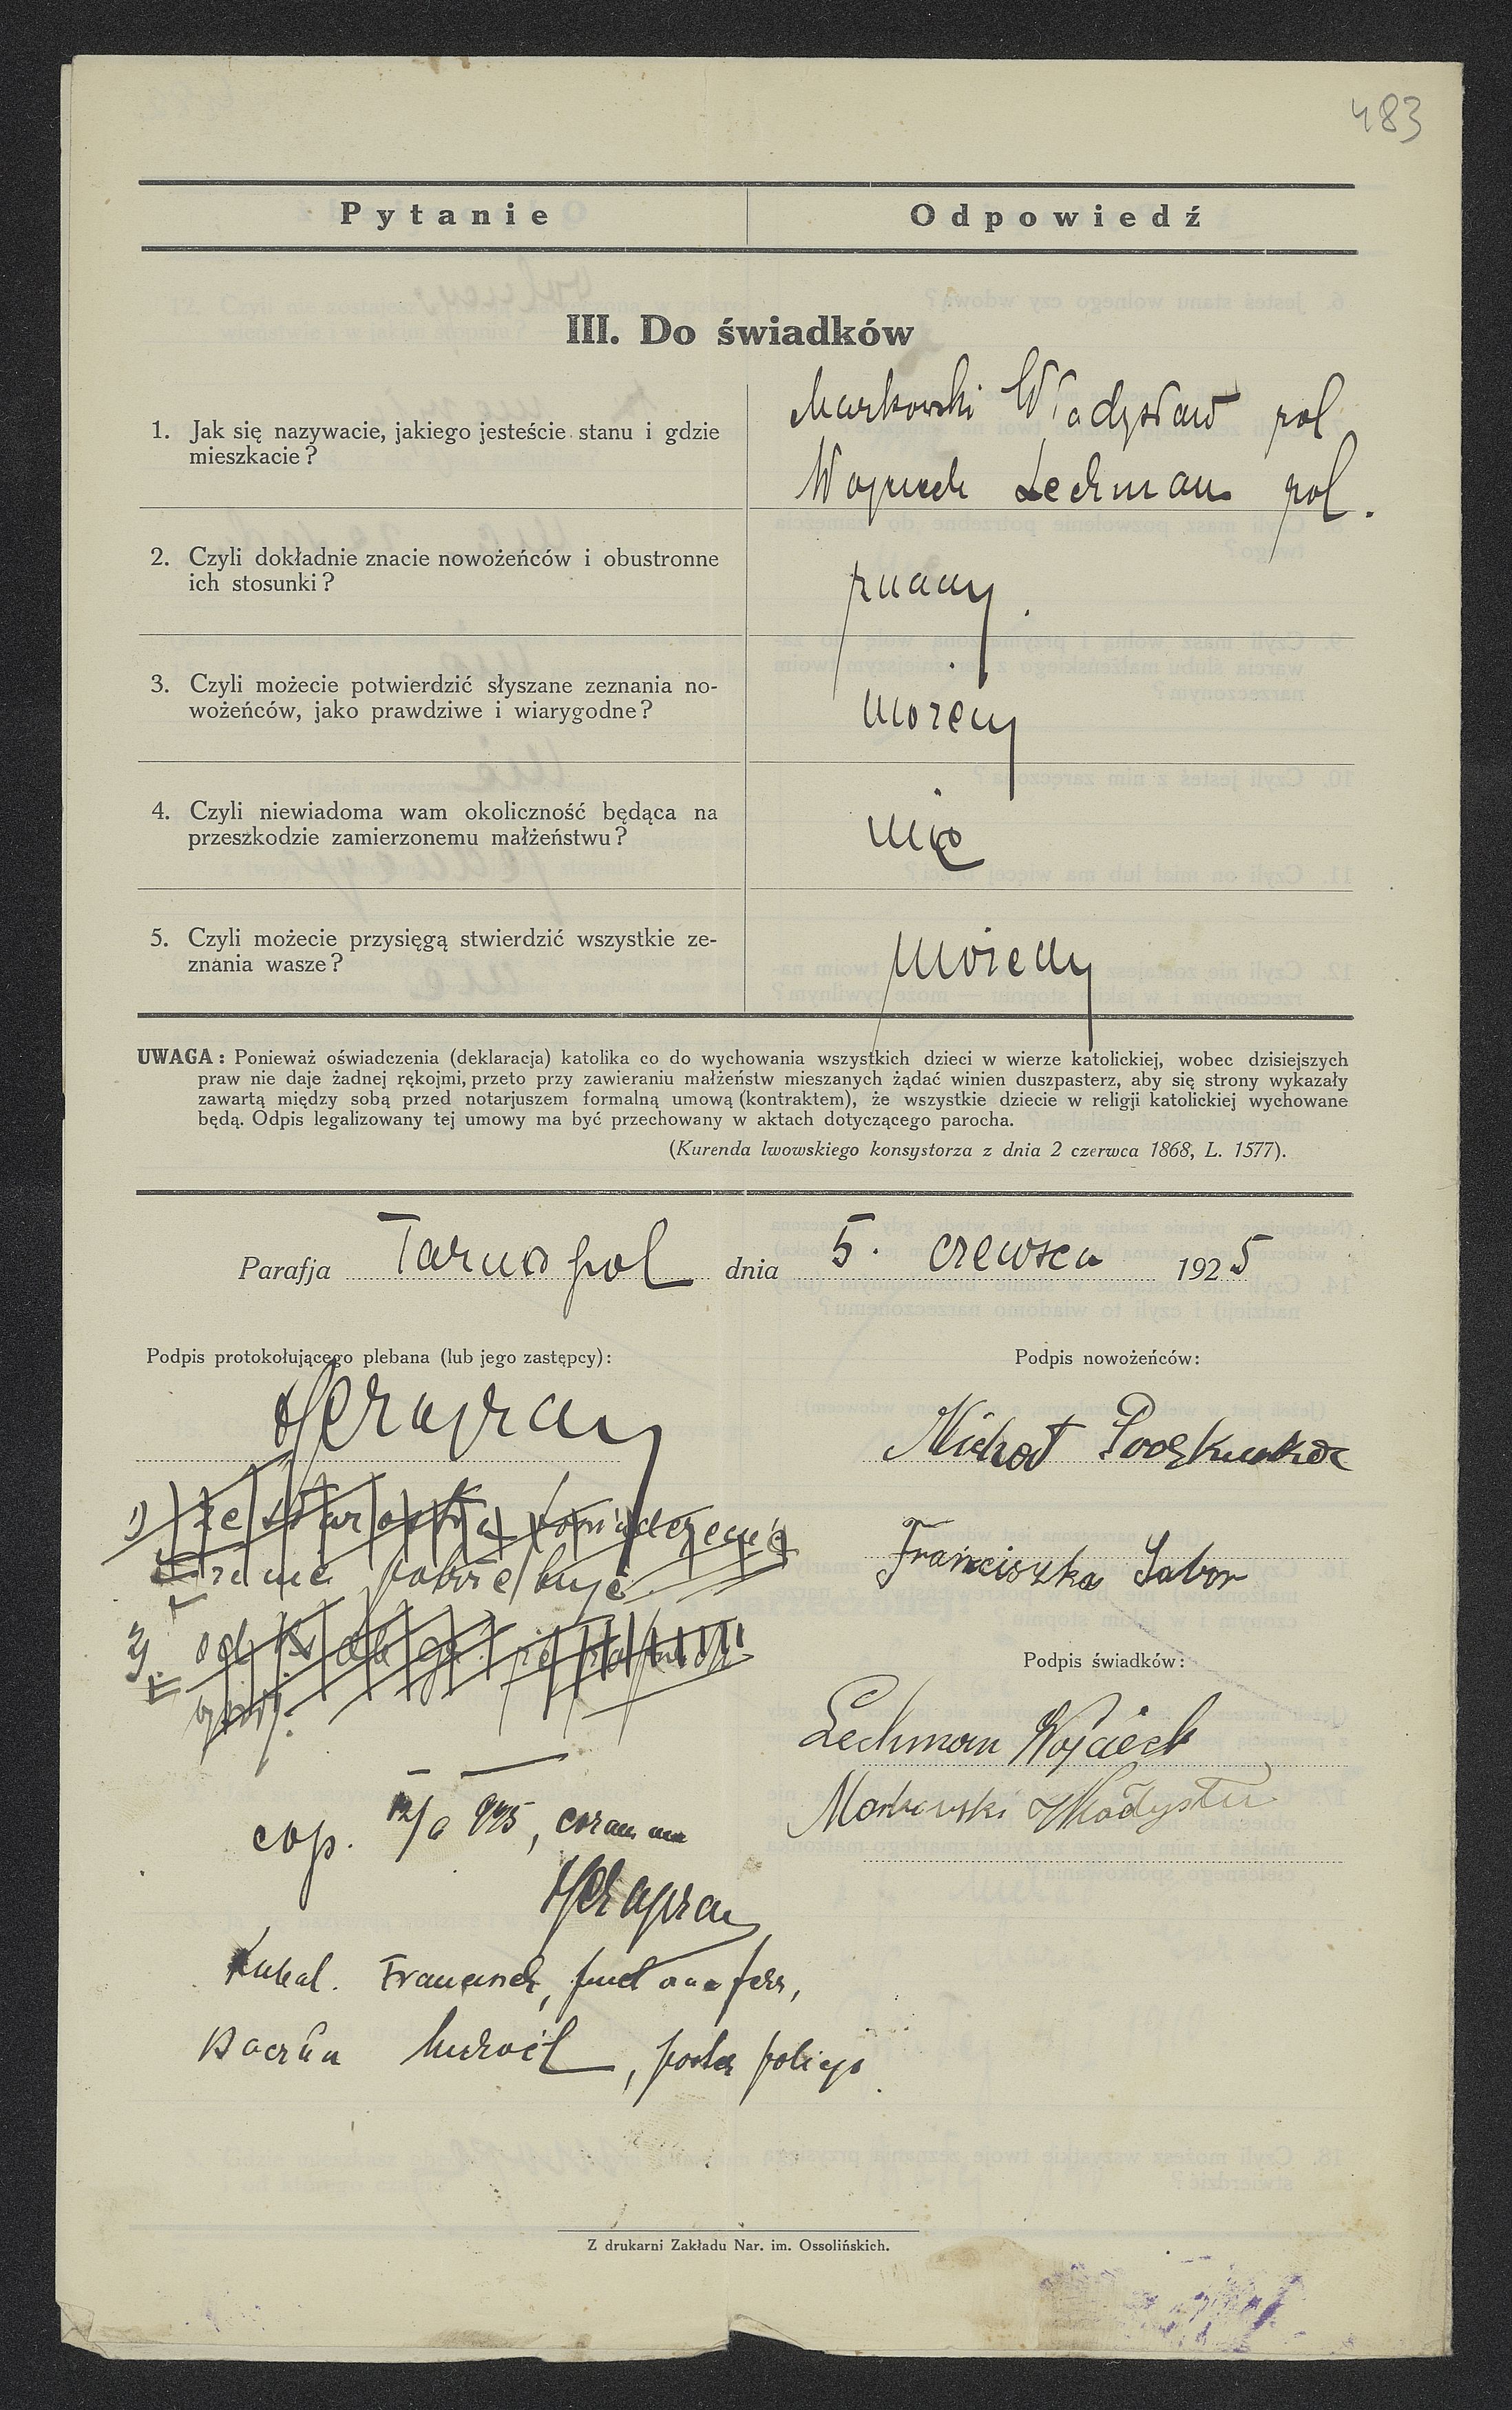 483
Pytanie Odpowiedź
III. Do świadków
1. Jak się nazywacie, jakiego jesteście stanu i gdzie
mieszkacie?
Markowski Władysław pol
Wojciech Lechman pol.
2. Czyli dokładnie znacie nowożeńców i obustronne
ich stosunki?
znamy.
3. Czyli możecie potwierdzić słyszane zeznania no-
wożeńców, jako prawdziwe i wiarygodne?
możemy
4. Czyli niewiadoma wam okoliczność będąca na
przeszkodzie zamierzonemu małżeństwu?
nie
5. Czyli możecie przysięgą stwierdzić wszystkie ze-
znania wasze?
możemy
UWAGA: Ponieważ oświadczenia (deklaracja) katolika co do wychowania wszystkich dzieci w wierze katolickiej, wobec dzisiejszych
praw nie daje żadnej rękojmi, przeto przy zawieraniu małżeństw mieszanych żądać winien duszpasterz, aby się strony wykazały
zawartą między sobą przed notarjuszem formalną umową (kontraktem), że wszystkie dziecie w religji katolickiej wychowane
będą. Odpis legalizowany tej umowy ma być przechowany w aktach dotyczącego parocha.
(Kurenda lwowskiego konsystorza z dnia 2 czerwca 1868, L. 1577).
Parafja Tarnopol dnia 5. czerwca 1925
Podpis protokołującego plebana (lub jego zastępcy):
Podpis nowożeńców:
Michał
Franciszka Sabor
1) ze starostwa
że nie potrzebuje
Podpis świadków:
Lechman Wojciech
Markowski Władysław
cop. 925, coram me
Franciszek,
Michał, policyi
Z drukarni Zakładu Nar. im. Ossolińskich.